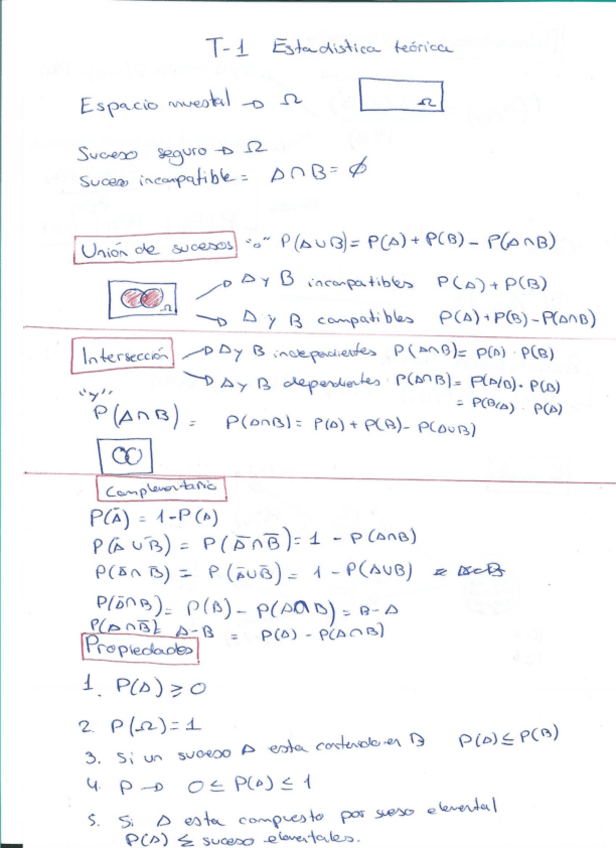 T-1 Estadistica teórica
Espacio muestal → Ω
Ω
Suceso seguro → Ω
Suceso incompatible = A∩B = ∅
Unión de sucesos "o" P(A∪B) = P(A) + P(B) - P(A∩B)
A y B incompatibles P(A) + P(B)
Ω
A y B compatibles P(A) + P(B) - P(A∩B)
Intersección A y B independientes P(A∩B) = P(A) · P(B)
A y B dependientes P(A∩B) = P(A/B) · P(B)
= P(B/A) · P(A)
"y"
P(A∩B) = P(A∩B) = P(A) + P(B) - P(A∪B)
Complementario
P(Ā) = 1 - P(A)
P(Ā ∪ B̄) = P(A̅∩̅B̅) = 1 - P(A∩B)
P(Ā∩B̄) = P(A̅∪̅B̅) = 1 - P(A∪B)
P(Ā∩B) = P(B) - P(A∩B) = B - A
P(A∩B̄) = A - B = P(A) - P(A∩B)
Propiedades
1. P(A) ≥ 0
2. P(Ω) = 1
3. Si un suceso A esta contenido en B P(A) ≤ P(B)
4. P → 0 ≤ P(A) ≤ 1
5. Si A esta compuesto por suceso elemental
P(A) ≤ suceso elementales.